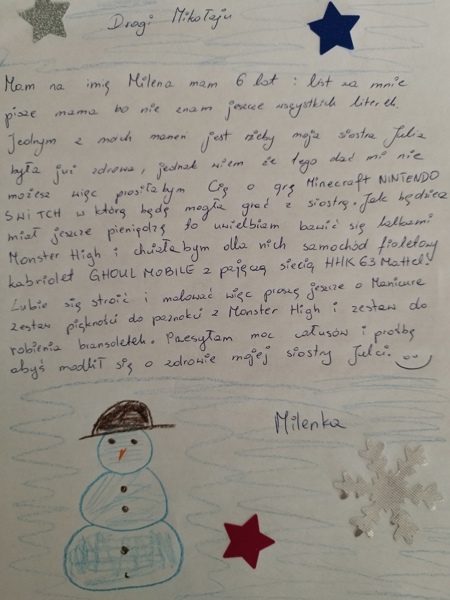 Drogi Mikołaju
Mam na imię Milena mam 6 lat i list za mnie
pisze mama bo nie znam jeszcze wszystkich literek.
Jednym z moich marzeń jest żeby moja siostra Julia
była już zdrowa, jednak wiem że tego dać mi nie
możesz więc prosiłabym Cię o grę Minecraft NINTENDO
SWITCH w którą będę mogła grać z siostrą. Jak będziesz
miał jeszcze pieniądze to uwielbiam bawić się lalkami
Monster High i chciałabym dla nich samochód fioletowy
kabriolet GHOUL MOBILE z pajęczą siecią HHK63 Mattel.
Lubię się stroić i malować więc proszę jeszcze o Manicure
zestaw piękności do paznokci z Monster High i zestaw do
robienia bransoletek. Przesyłam moc całusów i prośbę
abyś modlił się o zdrowie mojej siostry Julci.
Milenka